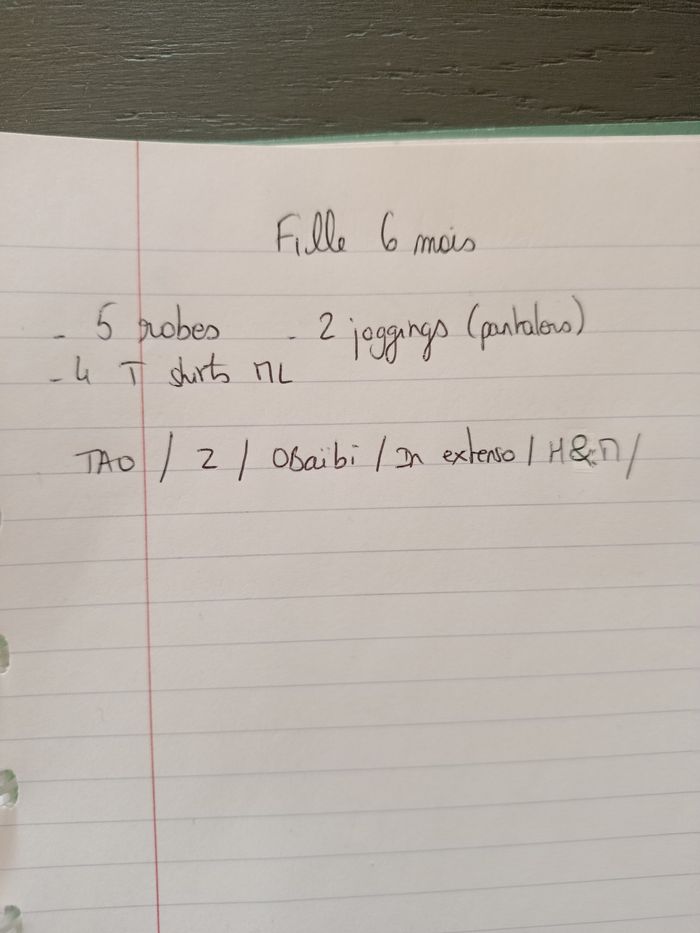 Fille 6 mois
- 5 robes - 2 joggings (pantalons)
- 4 T shirts ML
TAO / Z / OBaïbi / In extenso / H&M /